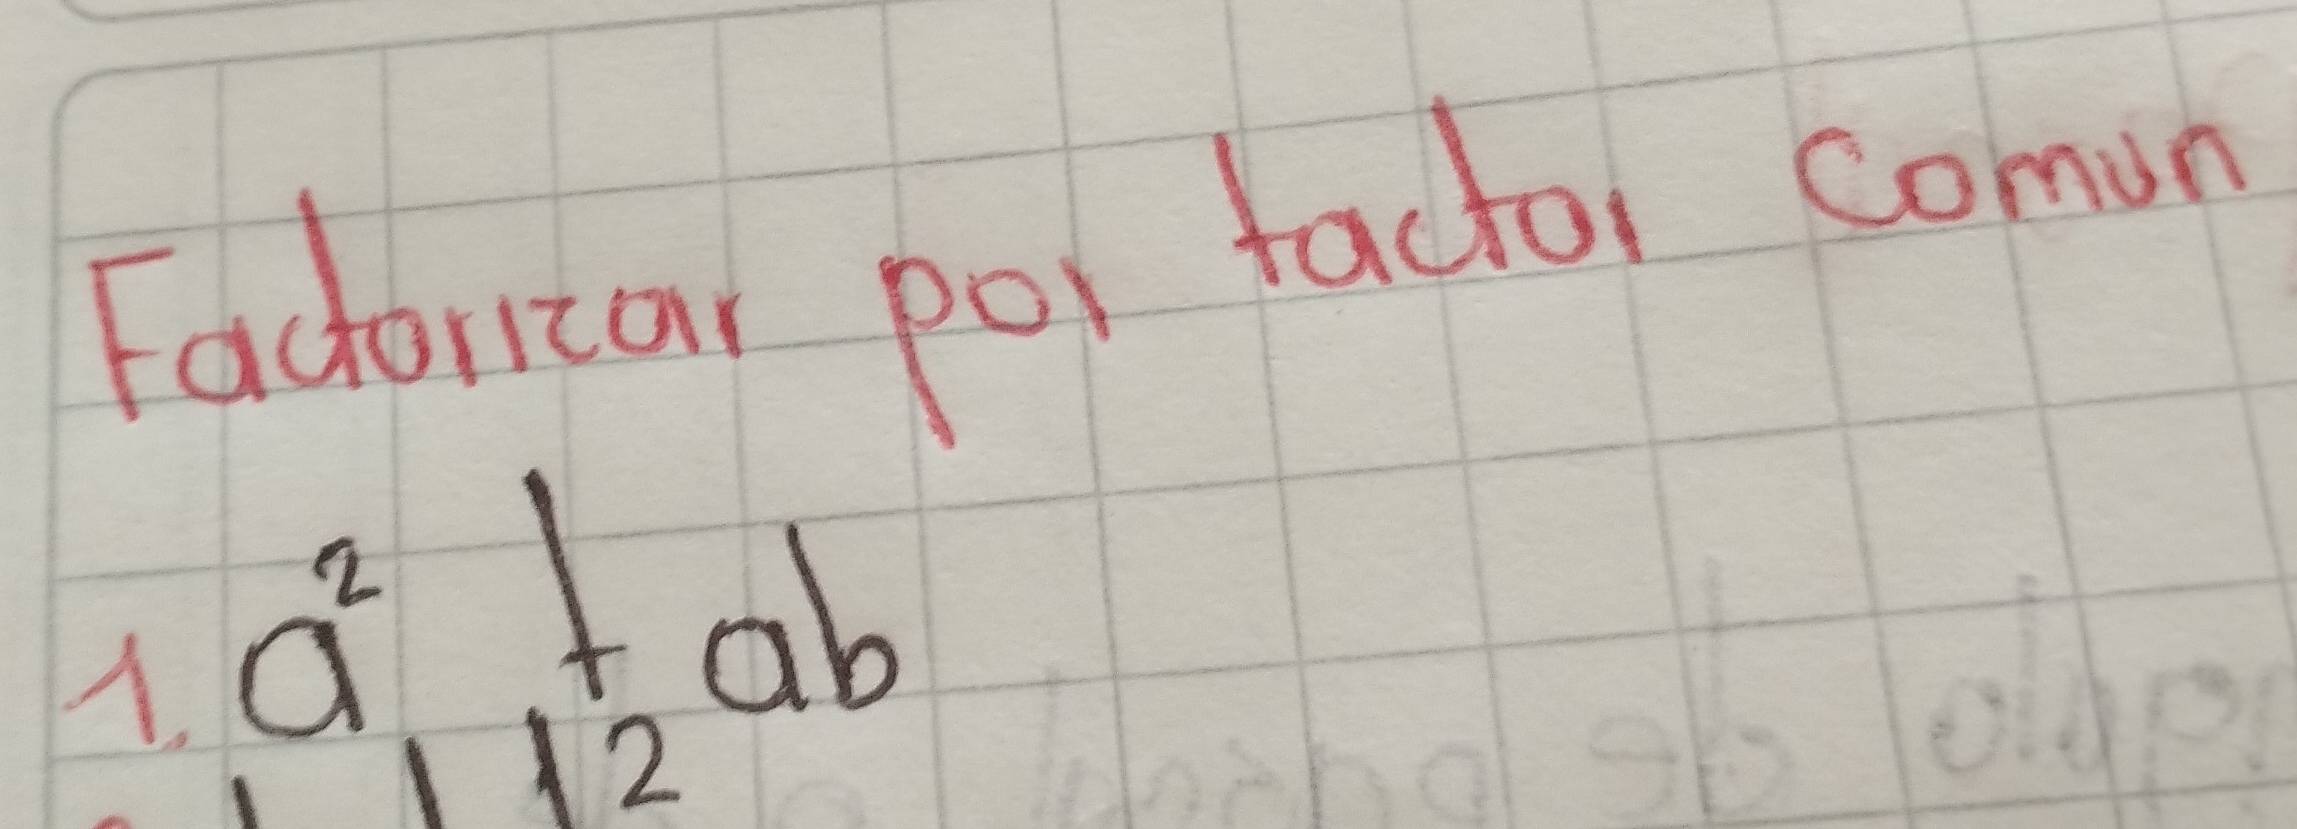 Factorizar por factor comun
1. a² + ab